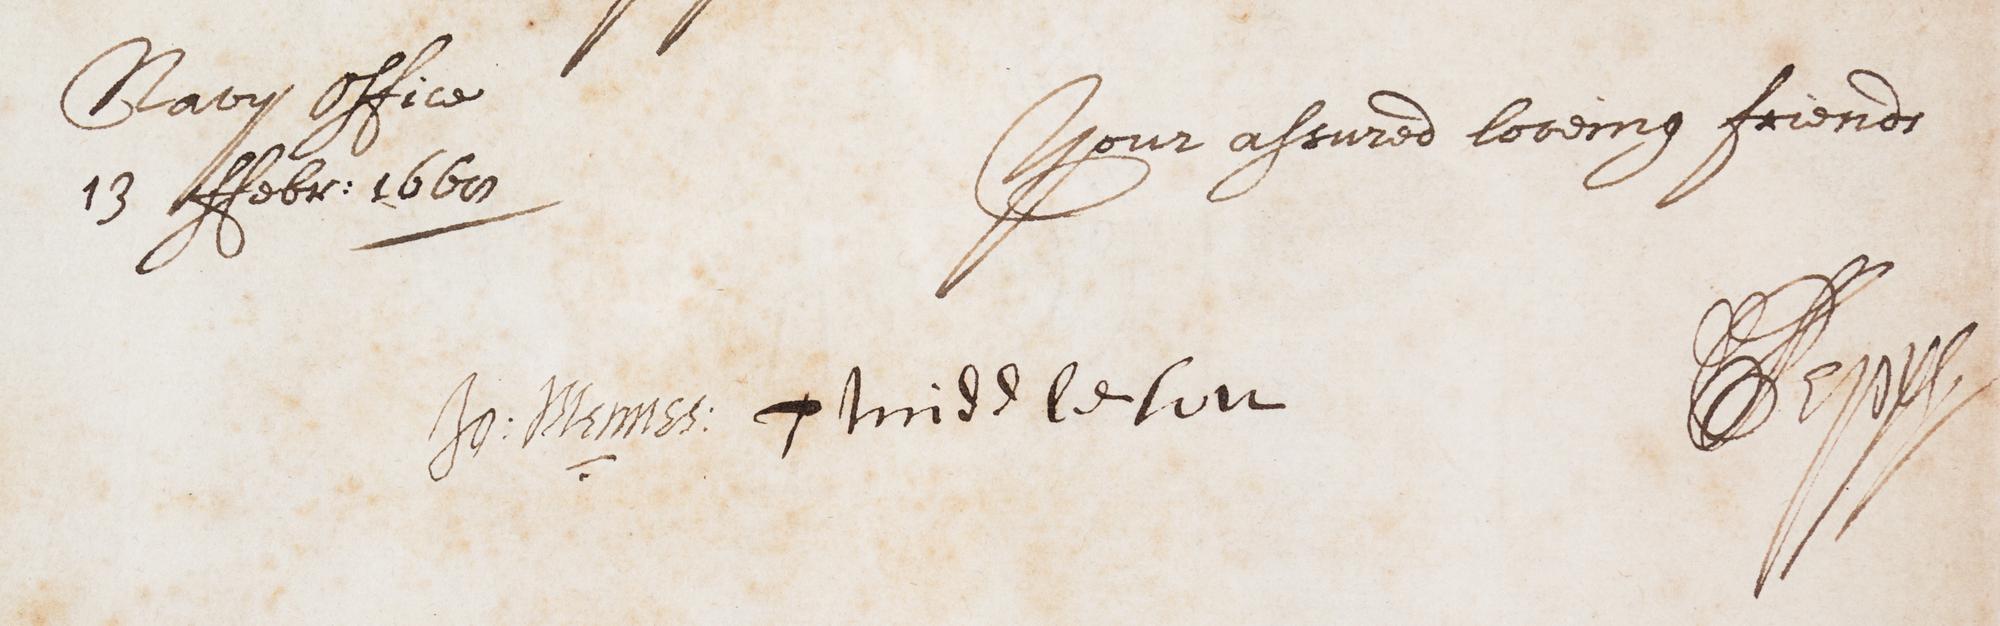 Navy Office
13 ffebr: 1668
Your assured loveing friends
Jo: Mennes: T Middleton SPepys